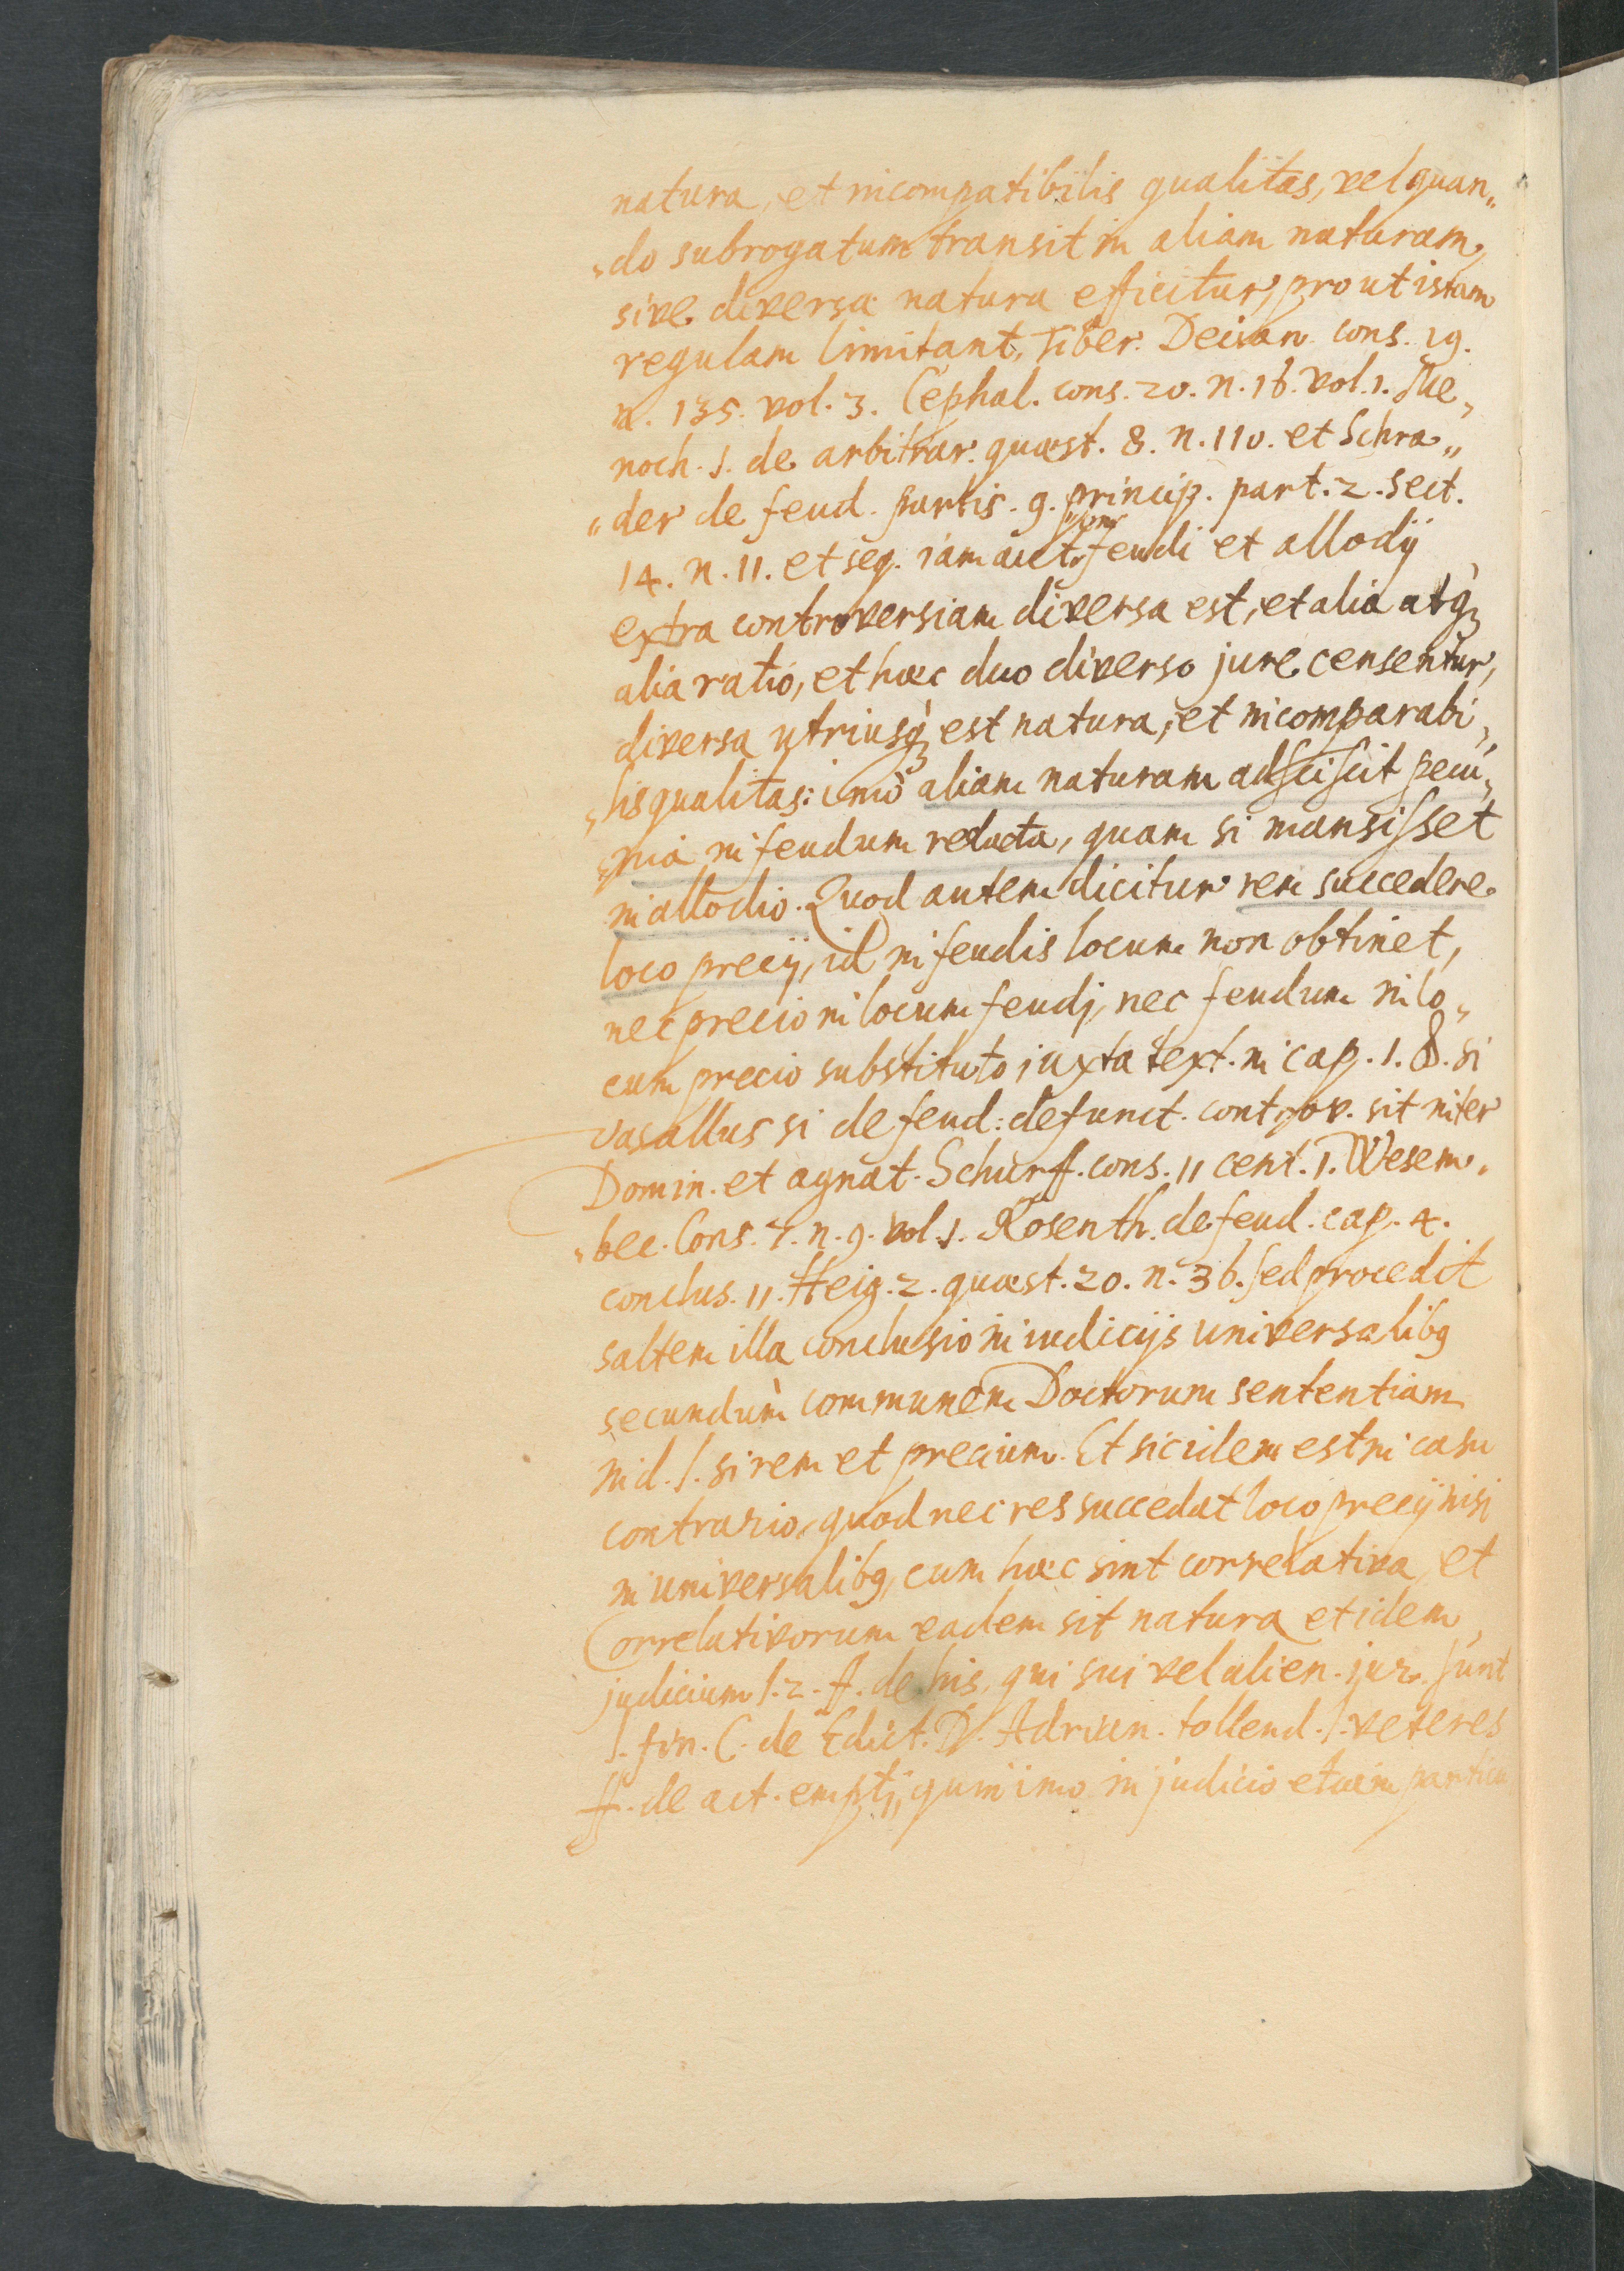 natura, et incompatibilis qualitas, vel quan„
„do subrogatum transit in aliam naturam,
sive diversa natura efficitur, prout istam
regulam limitant, Tiber. Decian. cons. 19.
n. 135. vol. 3. Cephal. cons. 20. n. 16. vol. 1. Me„
noch. 1. de arbitrar. quæst. 8. n. 110. et Schra„
„der de feud. partis. 9. princip. part. 2. sect.
14. n. 11. et seq. iam aut. feudi et allodij
extra controversiam diversa est, et alia atq;
alia ratio, et hæc duo diverso jure censentur,
diversa utriusq; est natura, et incomparabi„
„lis qualitas: imò aliam naturam adsciscit pecu„
„nia in feudum redacta, quam si mansisset
in allodio. Quod autem dicitur rem succedere
loco precij, id in feudis locum non obtinet,
nec precio in locum feudj, nec feudum in lo„
cum precio substituto iuxta text. in cap. 1. §. si
vasallus si de feud: defunct. controv. sit inter
Domin. et agnat. Schurff. cons. 11 cent. 1. Wesem„
„bec. Cons. 7. n. 9. vol. 1. Rosenth. de feud. cap. 4.
conclus. 11. Heig. 2. quæst. 20. n. 36. sed procedit
saltem illa conclusio in iudicijs universalibg
secundùm communem Doctorum sententiam
in d. l. si rem et precium. Et sic idem est in casu
contrario, quod nec res succedat loco precij nisi
in universalibg, cum hæc sint correlativa, et
Correlativorum eadem sit natura et idem
judicium l. 2. ff. de his, qui sui vel alien. jur. sunt
l. fin. C. de Edict. D. Adrian. tollend. l. veteres
ff. de act. emptj, quin imo in judicio etiam particu